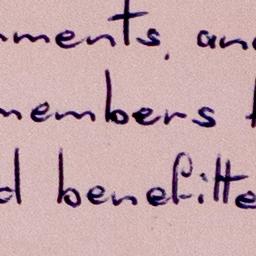 ments, and
members
benefitte